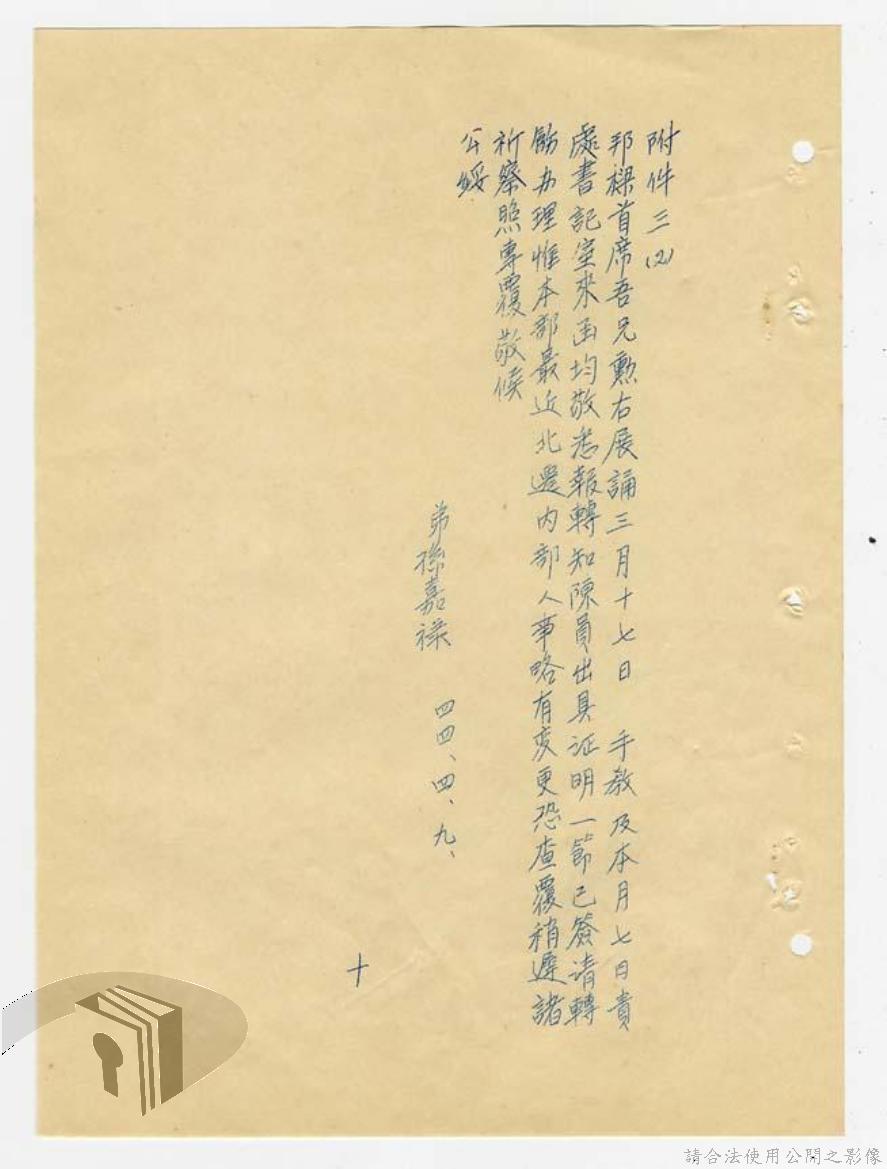 附件三(2)
邦樑首席吾兄勳右展誦三月十七日　手教及本月七日貴
處書記室來函均敬悉報轉知陳員出具证明一節已簽请轉
飭办理惟本部最近北遷內部人事略有变更恐查覆稍遲諸
祈察照專覆敬候
公綏
弟孫嘉祿　四四、四、九、
十
請合法使用公開之影像